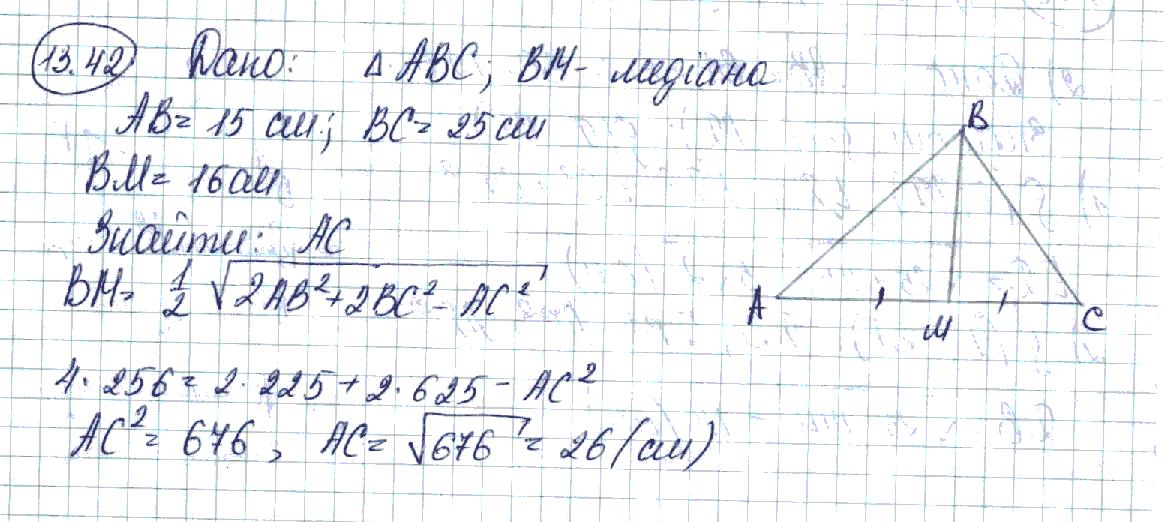 13.42 Дано: △ ABC; BM - медіана
AB = 15 см; BC = 25 см
BM = 16 см
Знайти: AC
BM = 1/2 √(2AB² + 2BC² - AC²)
4 · 256 = 2 · 225 + 2 · 625 - AC²
AC² = 676, AC = √676 = 26 (см)
B
A
M
C